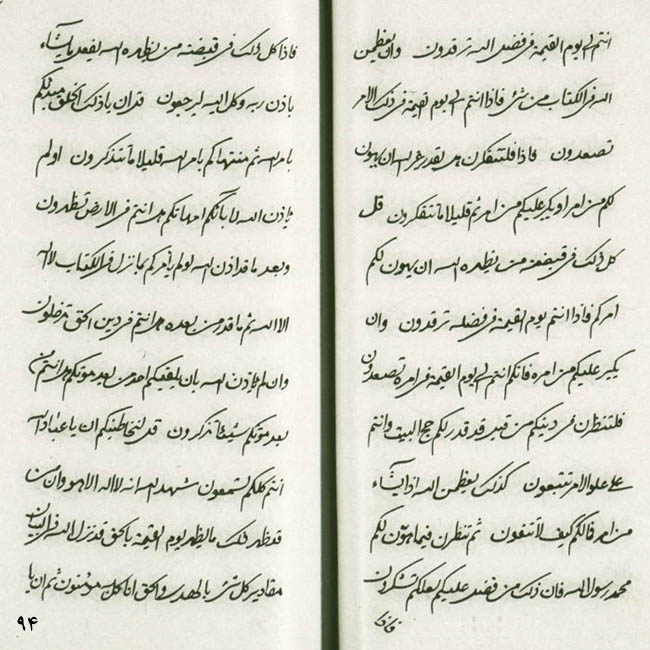 انتم الی یوم القیمة فی فضل الله ترقدون وان یعظمن
الله فی الکتاب من شئ فاذا انتم الی یوم القیمة فی ذلک الامر
تصعدون فاذا فلتتفکرن هل یقدر غیر الله ان یهون
لکم من امر او یکبر علیکم من امر ثم قلیلا ما تتفکرون قل
کل ذلک فی قبضته من یظهره الله ان یهون لکم
امرکم فاذا انتم یوم القیمة فی فضله ترقدون وان
یکبر علیکم من امره فانکم انتم الی یوم القیمة فی امره تصعدون
فلتنظرن فی دینکم من قبل قد قدر لکم حج البیت وانتم
علی علو الامر تتبعون کذلک یعظمن الله اذا یشاء
من امر فالکم کیف لا تتقون ثم تنظرن فیما هون لکم
محمد رسول الله فان ذلک من فضل علیکم لعلکم تشکرون
فاذا
فاذا کل ذلک فی قبضته من یظهره الله یفعل ما یشاء
باذن ربه وکل الیه لیرجعون قل ان یا ذلک الخلق مبدئکم
بامر الله ثم منتهاکم بامر الله قلیلا ما تتذکرون او لم
یاذن الله لابائکم امهاتکم هل انتم فی الارض تظهرون
وبعد ما قد اذن الله لو لم یامرکم بما نزل فی الکتاب لا اله
الا الله ثم ما قدر من بعده هل انتم فی دین الحق تدخلون
وان لم یاذن الله بان یلقینکم احد من بعد موتکم هل انتم من
بعد موتکم شیئا تذکرون قل لنخاطبنکم ان یا عباد الله
انتم کلکم لتسمعون شهد الله انه لا اله الا هو وان من
قد ظهر ذلک ما لیظهر یوم القیمة بالحق قد نزل الله فی البیان
مقادیر کل شئ بالهدی والحق انا کل به مؤمنون ثم ان یا
۹۴